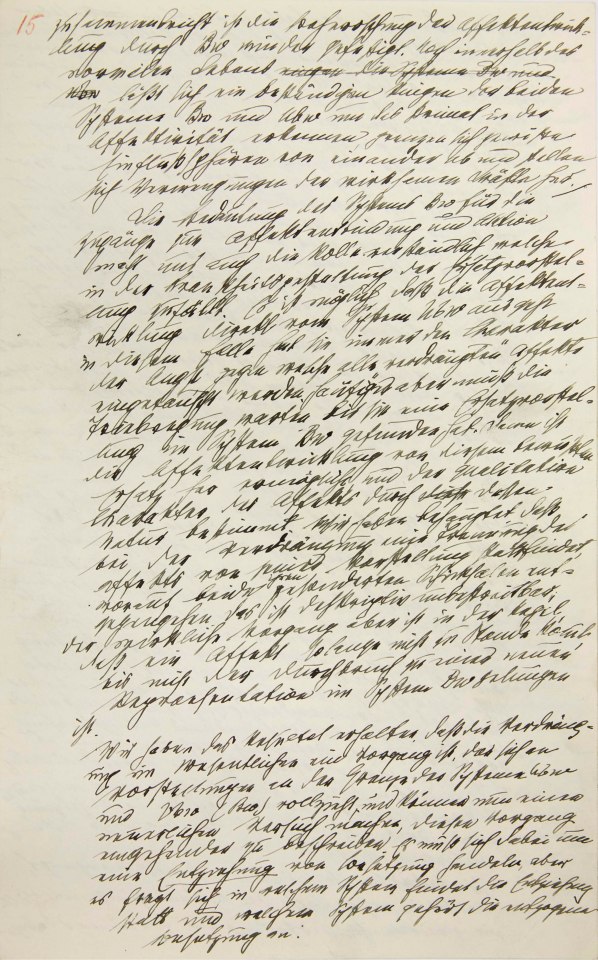 15
zusammenbricht ist die Beherrschung der Affektentwick-
lung durch Bw minder gefestigt. Noch innerhalb des
normalen Lebens ringen die Systeme Bw und
Ubw läßt sich ein beständiges Ringen der beiden
Systeme Bw und Ubw um das Primat in der
Affektivität erkennen, grenzen sich gewisse
Einflußsphären von einander ab und stellen
sich Vermengungen der wirksamen Kräfte her.
Die Bedeutung des Systems Bw für die
Zugänge zur Affektentbindung und Aktion
macht uns auch die Rolle verständlich welche
in der Krankheitsgestaltung der Ersatzvorstel-
lung zufällt. Es ist möglich, daß die Affektent-
wicklung direkt vom System Ubw ausgeht
in diesem Falle hat sie immer den Charakter
der Angst, gegen welche alle verdrängten Affekte
eingetauscht werden, häufig aber muß die
Triebregung warten bis sie eine Ersatzvorstel-
lung im System Bw gefunden hat. Dann ist
die Affektentwicklung von diesem bewußten
Ersatz her ermöglicht und der qualitative
Charakter des Affekts durch dessen
Natur bestimmt. Wir haben behauptet, daß
bei der Verdrängung eine Trennung des
Affekts von seiner Vorstellung stattfindet,
worauf beide ihren gesonderten Schicksalen ent-
gegengehen. Das ist deskriptiv unbestreitbar,
der wirkliche Vorgang aber ist in der Regel
daß ein Affekt solange nicht zu Stande kommt
bis nicht der Durchbruch zu einer neuen
Repraesentation im System Bw gelungen
ist.
Wir haben das Resultat erhalten, daß die Verdräng-
ung im Wesentlichen ein Vorgang ist, der sich an
Vorstellungen an der Grenze der Systeme Ubw
und Vbw (Bw) vollzieht und können nun einen
neuerlichen Versuch machen, diesen Vorgang
eingehender zu beschreiben. Es muß sich dabei um
eine Entziehung von Besetzung handeln, aber
es fragt sich in welchem System findet die Entziehung
statt und welchem System gehört die entzogene
Besetzung an.